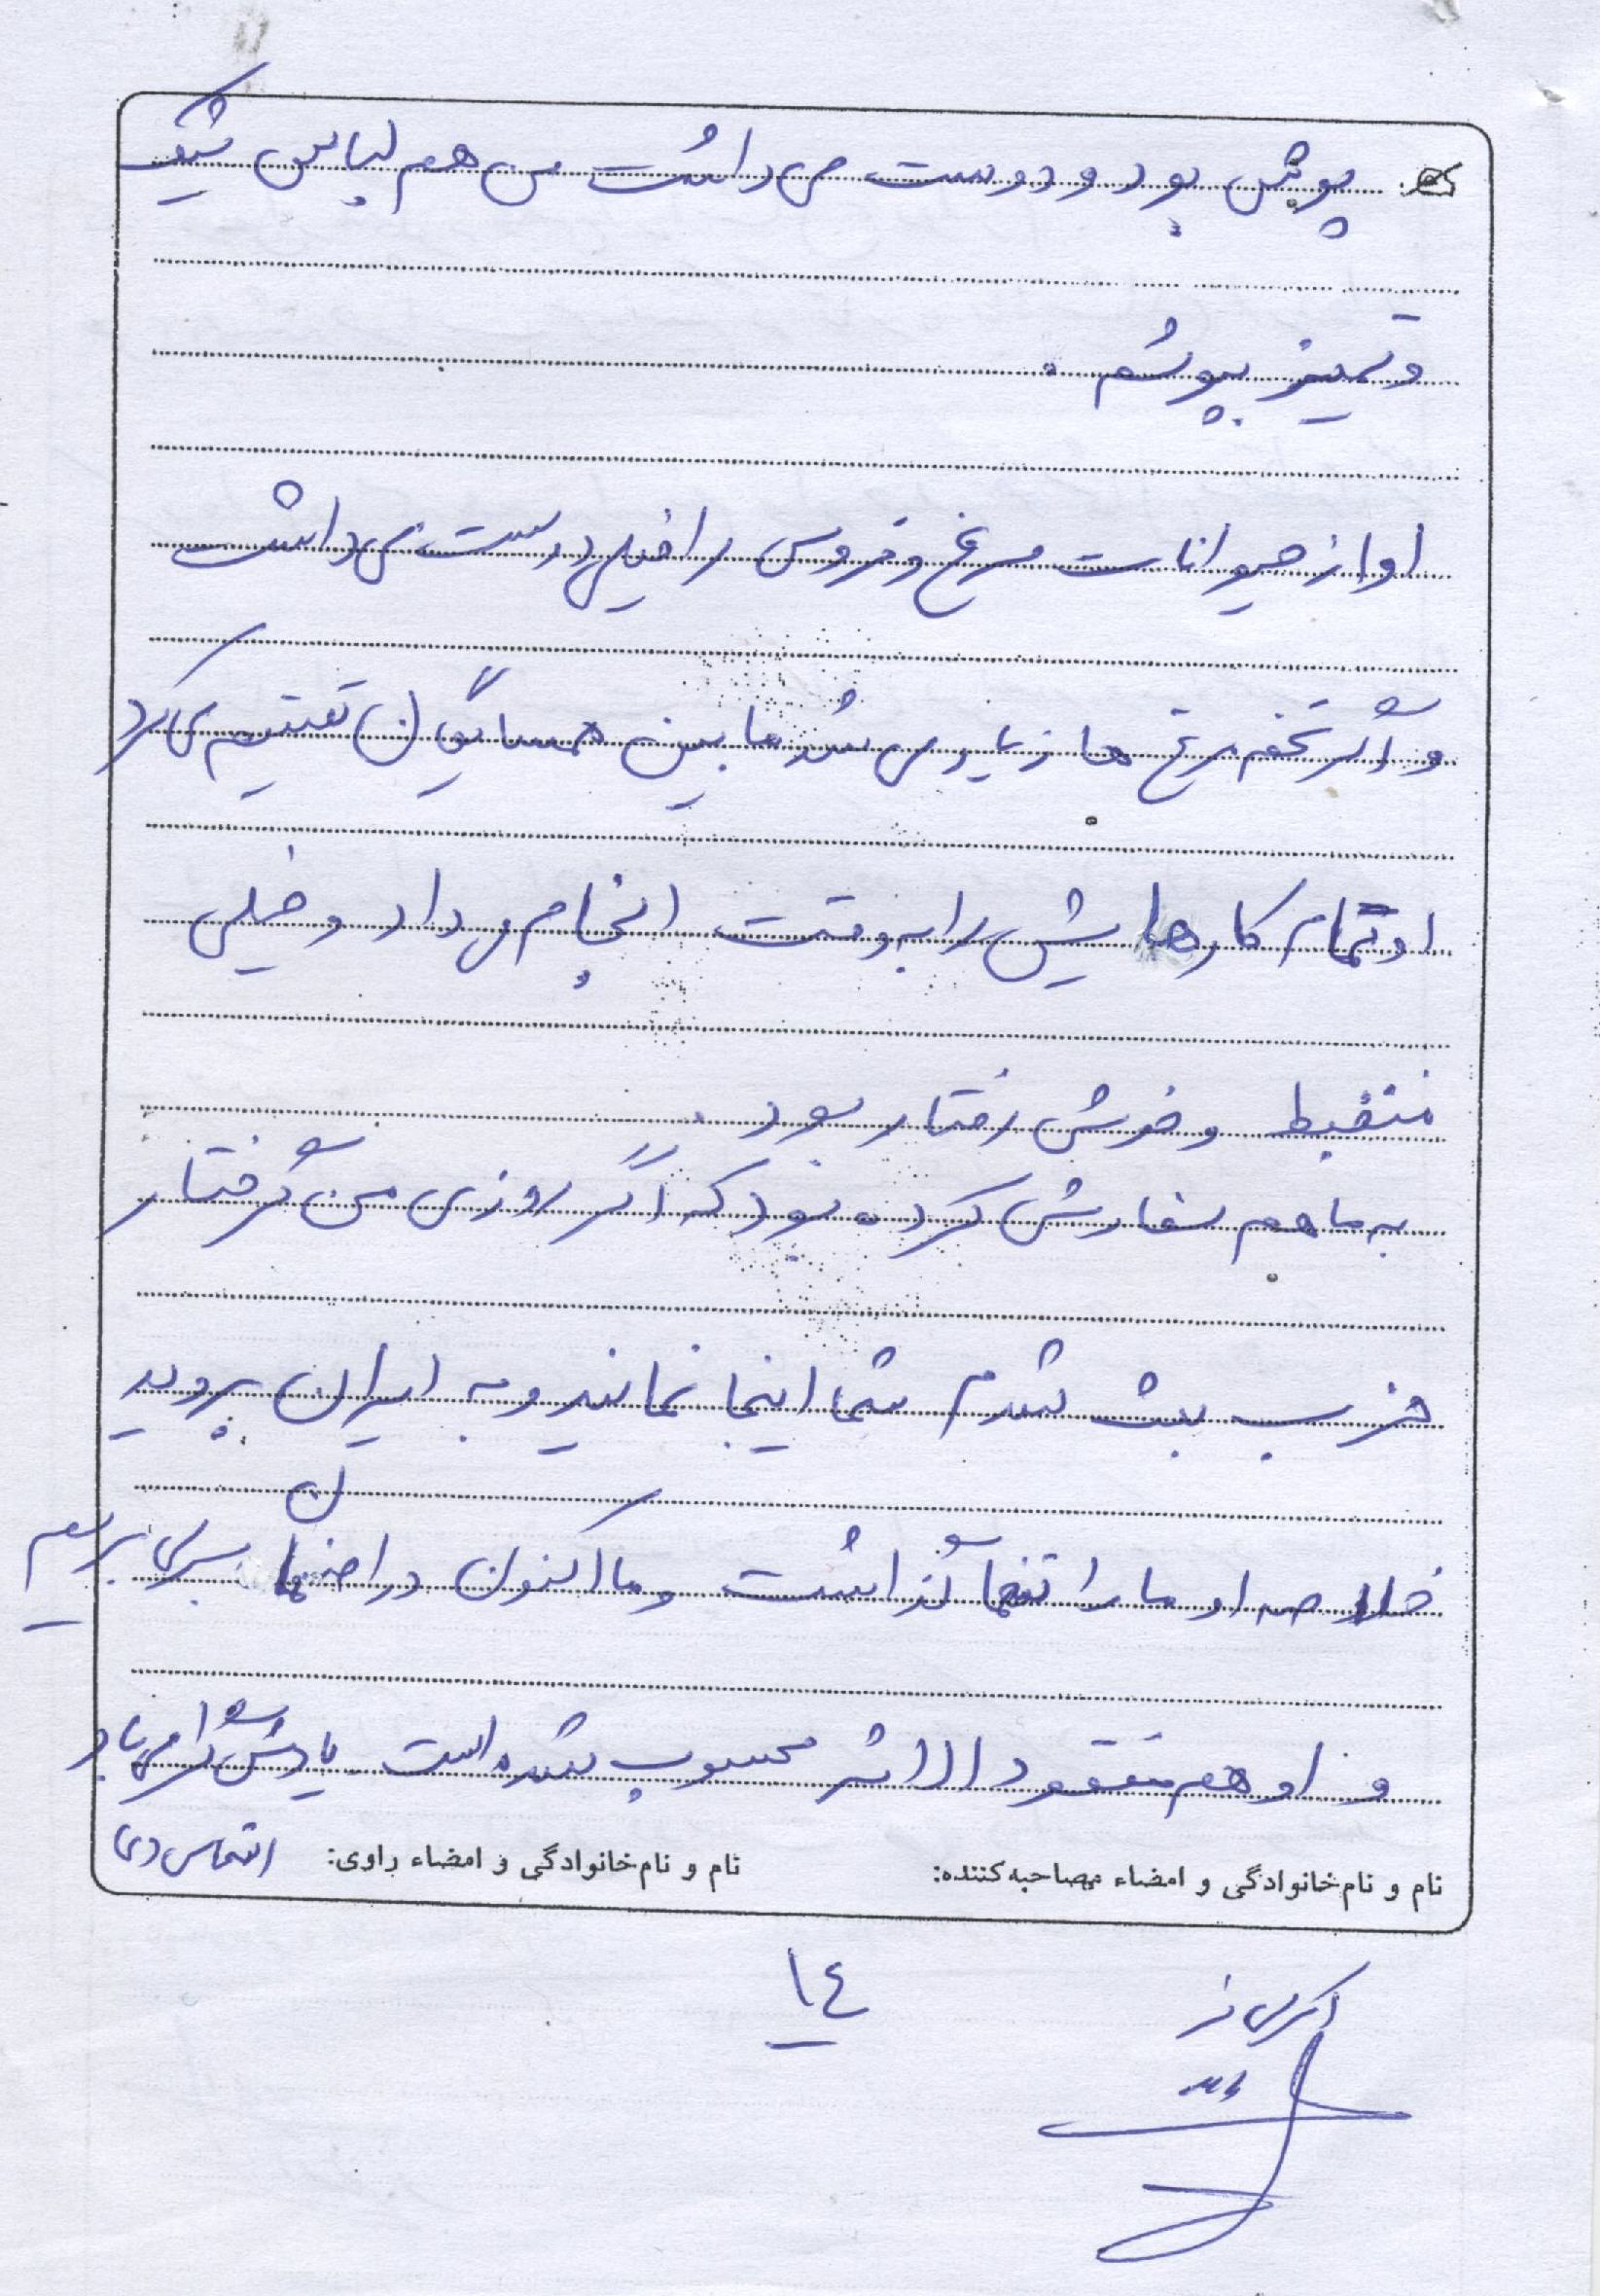 پوش بود و دوست می داشت من هم لباس شیک
و تمیز بپوشم .
او از حیوانات مرغ و خروس را خیلی دوست می داشت
و اگر تخم مرغ ها زیاد می شد ما بین همسایگان تقسیم می کرد
او تمام کارهایش را به وقت انجام می داد و خیلی
منضبط و خوش رفتار بود .
به ما هم سفارش کرده بود که اگر روزی من گرفتار
حزب بعث شدم شما اینجا نمانید و به ایران بروید
خلاصه او ما را تنها گذاشت و ما اکنون در اصفهان بسر می بریم
و او هم مفقود الاثر محسوب شده است یادش گرامی باد
التماس دعا
نام و نام خانوادگی و امضاء مصاحبه کننده: نام و نام خانوادگی و امضاء راوی:
١٤